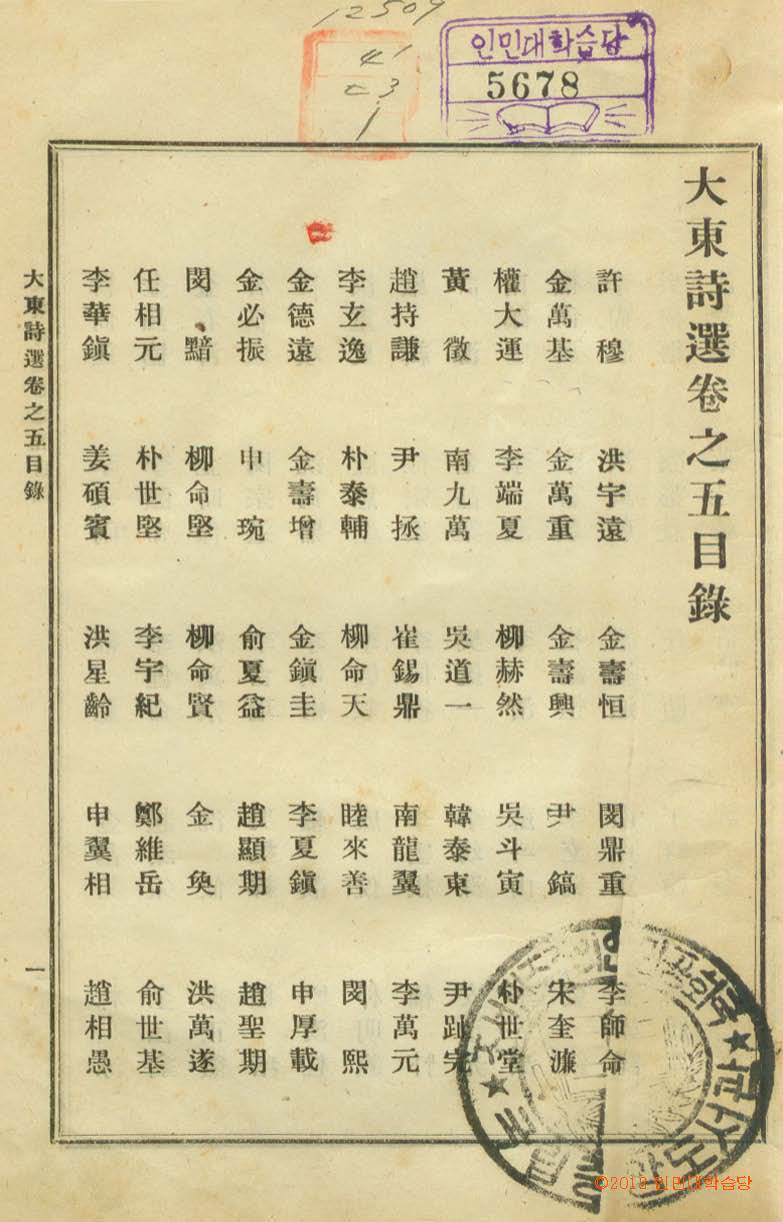 12509
41
ㄷ3
1
인민대학습당
5678
大東詩選卷之五目錄
許穆 洪宇遠 金壽恒 閔鼎重 李師命
金萬基 金萬重 金壽興 尹鑴 宋奎濂
權大運 李端夏 柳赫然 吳斗寅 朴世堂
黃徵 南九萬 吳道一 韓泰東 尹趾完
趙持謙 尹拯 崔錫鼎 南龍翼 李萬元
李玄逸 朴泰輔 柳命天 睦來善 閔熙
金德遠 金壽增 金鎭圭 李夏鎭 申厚載
金必振 申琓 俞夏益 趙顯期 趙聖期
閔黯 柳命堅 柳命賢 金奐 洪萬遂
任相元 朴世堅 李宇紀 鄭維岳 俞世基
李華鎭 姜碩賓 洪星齡 申翼相 趙相愚
大東詩選卷之五目錄
一
©2012 인민대학습당